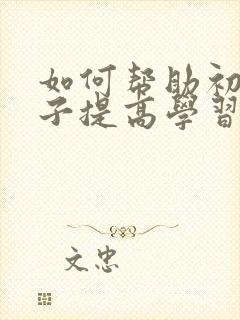 如何帮助初
子提高學習
文忠